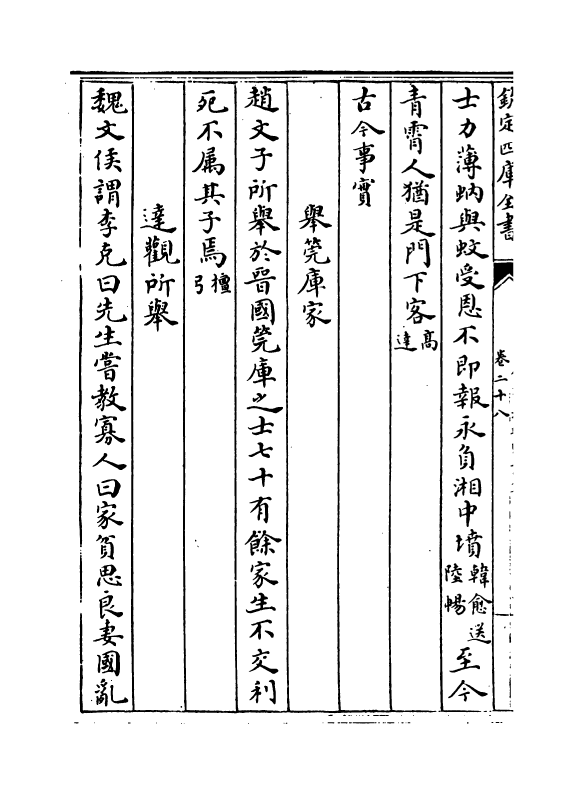 欽定四庫全書
卷二十八
士力薄蚋與蚊受恩不即報永負湘中墳韓愈送陸暢至今
青霄人猶是門下客高達
古今事實
舉筦庫家
趙文子所舉於晉國筦庫之士七十有餘家生不交利
死不屬其子焉檀弓
達觀所舉
魏文侯謂李克曰先生嘗教寡人曰家貧思良妻國亂